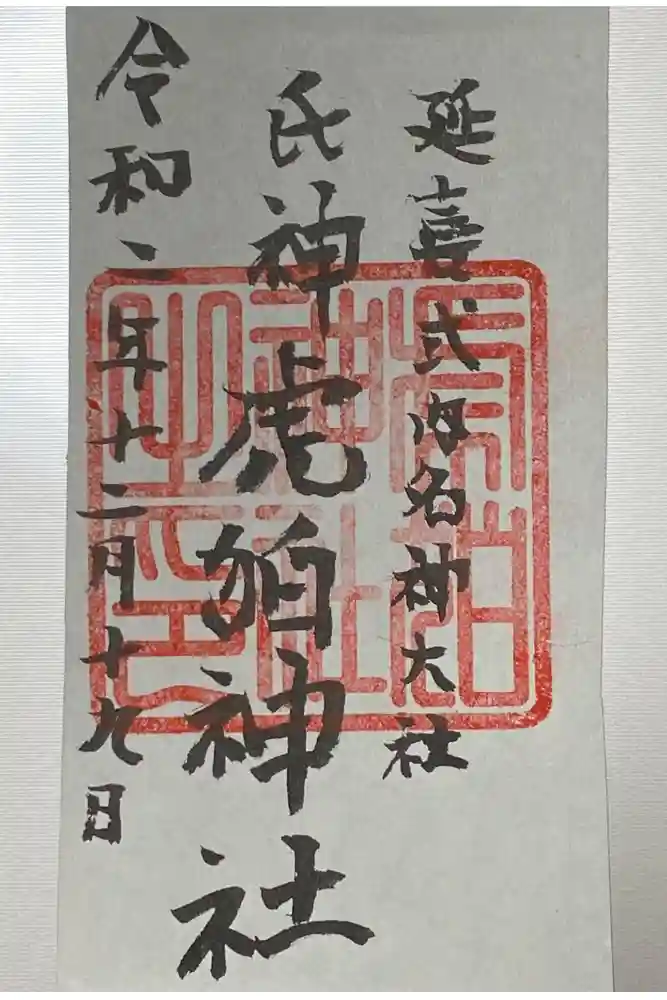 延喜式内名神大社
氏神虎狛神社
令和二年十二月十九日